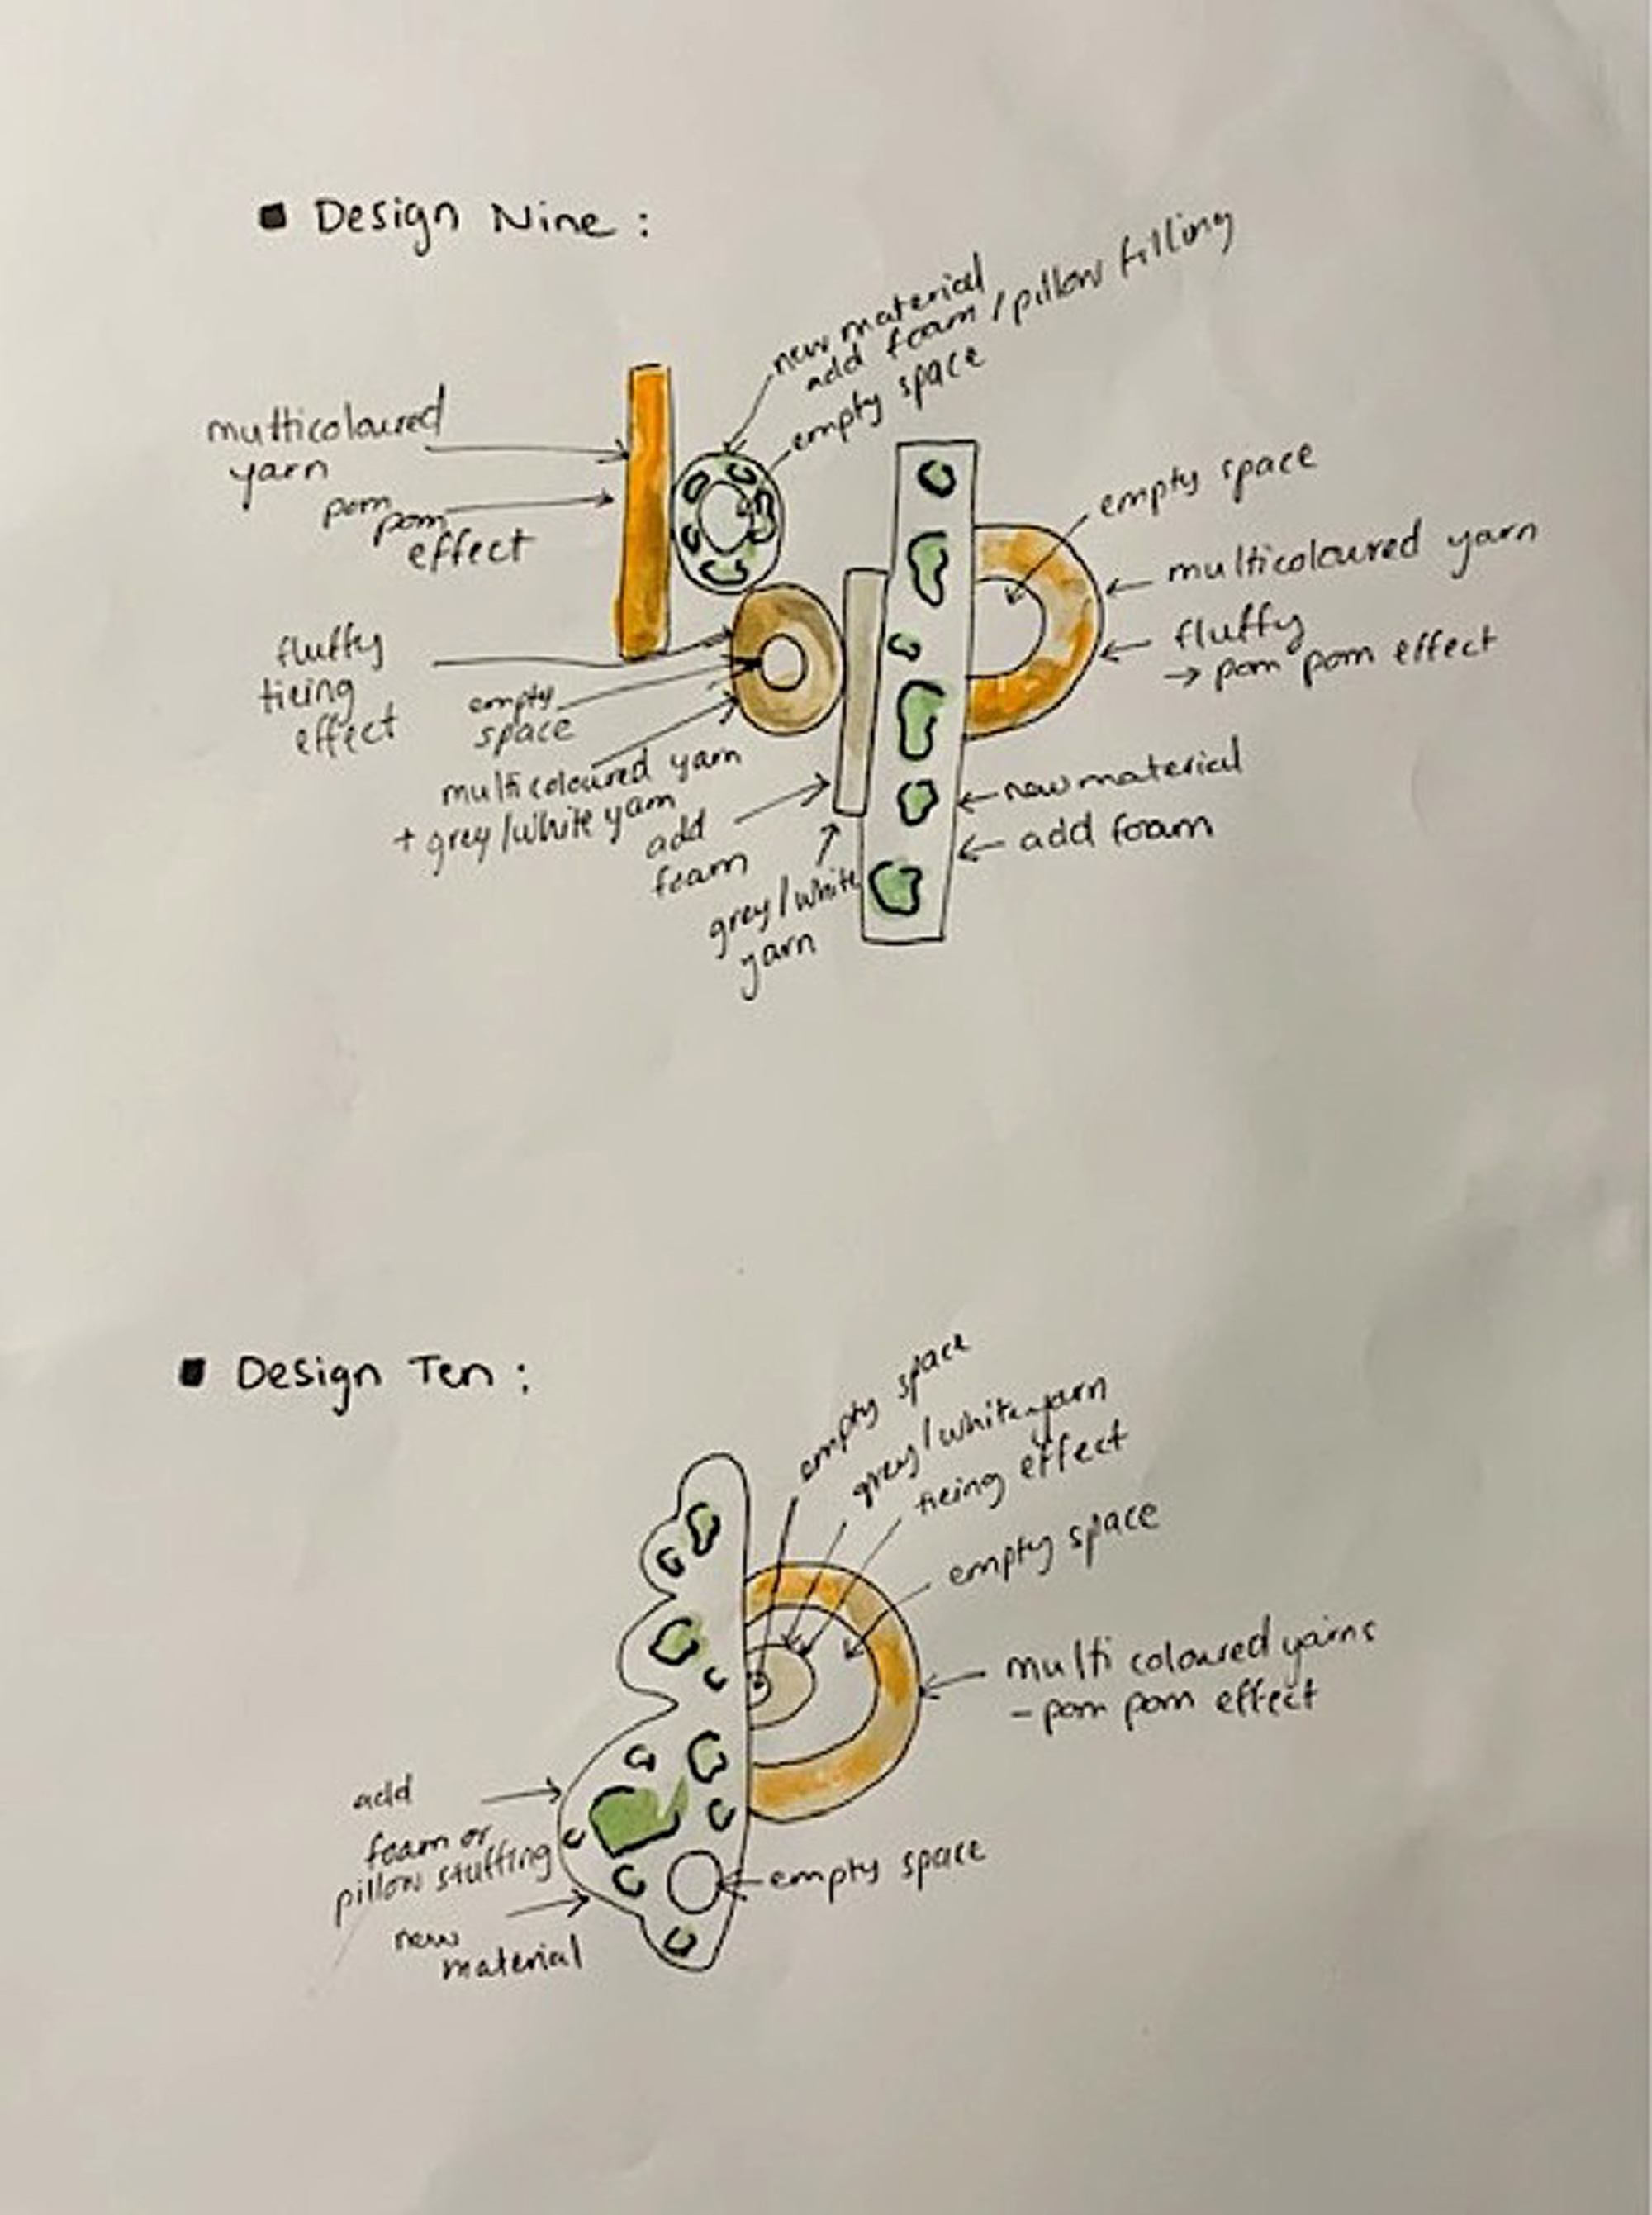 ■ Design Nine :
new material
add foam / pillow filling
empty space
multicoloured
yarn
pom
pom
effect
empty space
multicoloured yarn
fluffy
→ pom pom effect
fluffy
tieing
effect
empty
space
multi coloured yarn
+ grey / white yarn
add
foam
grey / white
yarn
new material
add foam
■ Design Ten :
empty space
grey / white yarn
tieing effect
empty space
multi coloured yarns
- pom pom effect
add
foam or
pillow stuffing
new
material
empty space